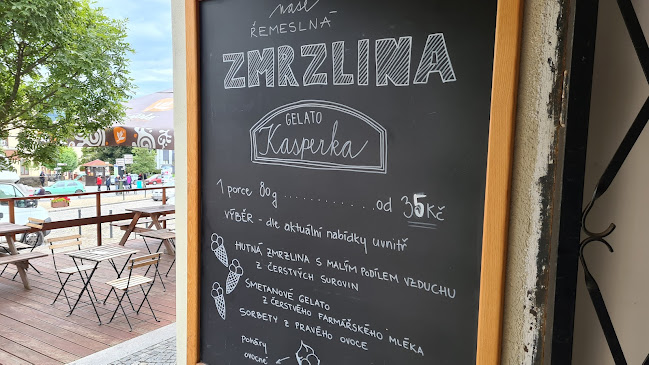 naše
ŘEMESLNÁ
ZMRZLINA
GELATO
Kasperka
1 porce 80g ............. od 35Kč
VÝBĚR - dle aktuální nabídky uvnitř
HUTNÁ ZMRZLINA S MALÝM PODÍLEM VZDUCHU
Z ČERSTVÝCH SUROVIN
SMETANOVÉ GELATO
Z ČERSTVÉHO FARMÁŘSKÉHO MLÉKA
SORBETY Z PRAVÉHO OVOCE
POHÁRY
OVOCNÉ